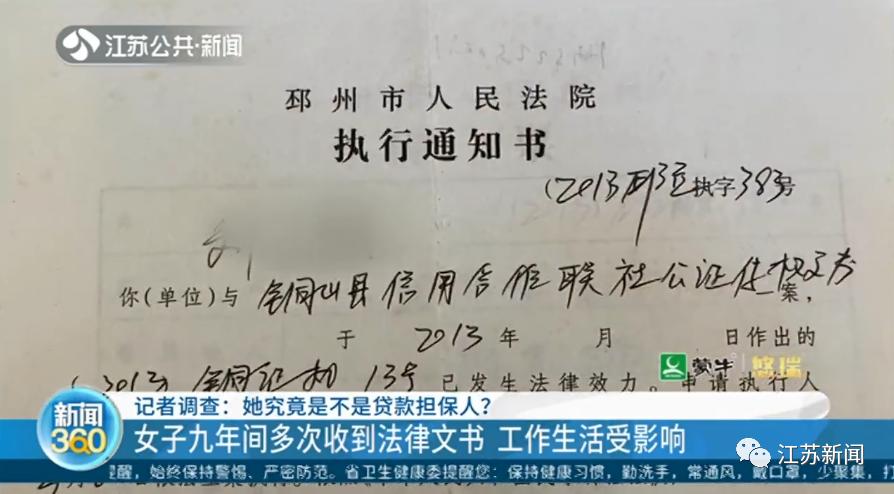 江苏公共·新闻
邳州市人民法院
执行通知书
(2013)邳执字383号
你(单位)与铜山县信用合作联社公证债权文书案,
于2013年 月 日作出的
(2013) 铜证执 13号已发生法律效力。申请执行人
蒙牛 悠瑞
新闻360
记者调查:她究竟是不是贷款担保人?
女子九年间多次收到法律文书 工作生活受影响
江苏新闻
提醒,始终保持警惕、严密防范。省卫生健康委提醒您:保持健康习惯,勤洗手,常通风,戴口罩,少聚集,打